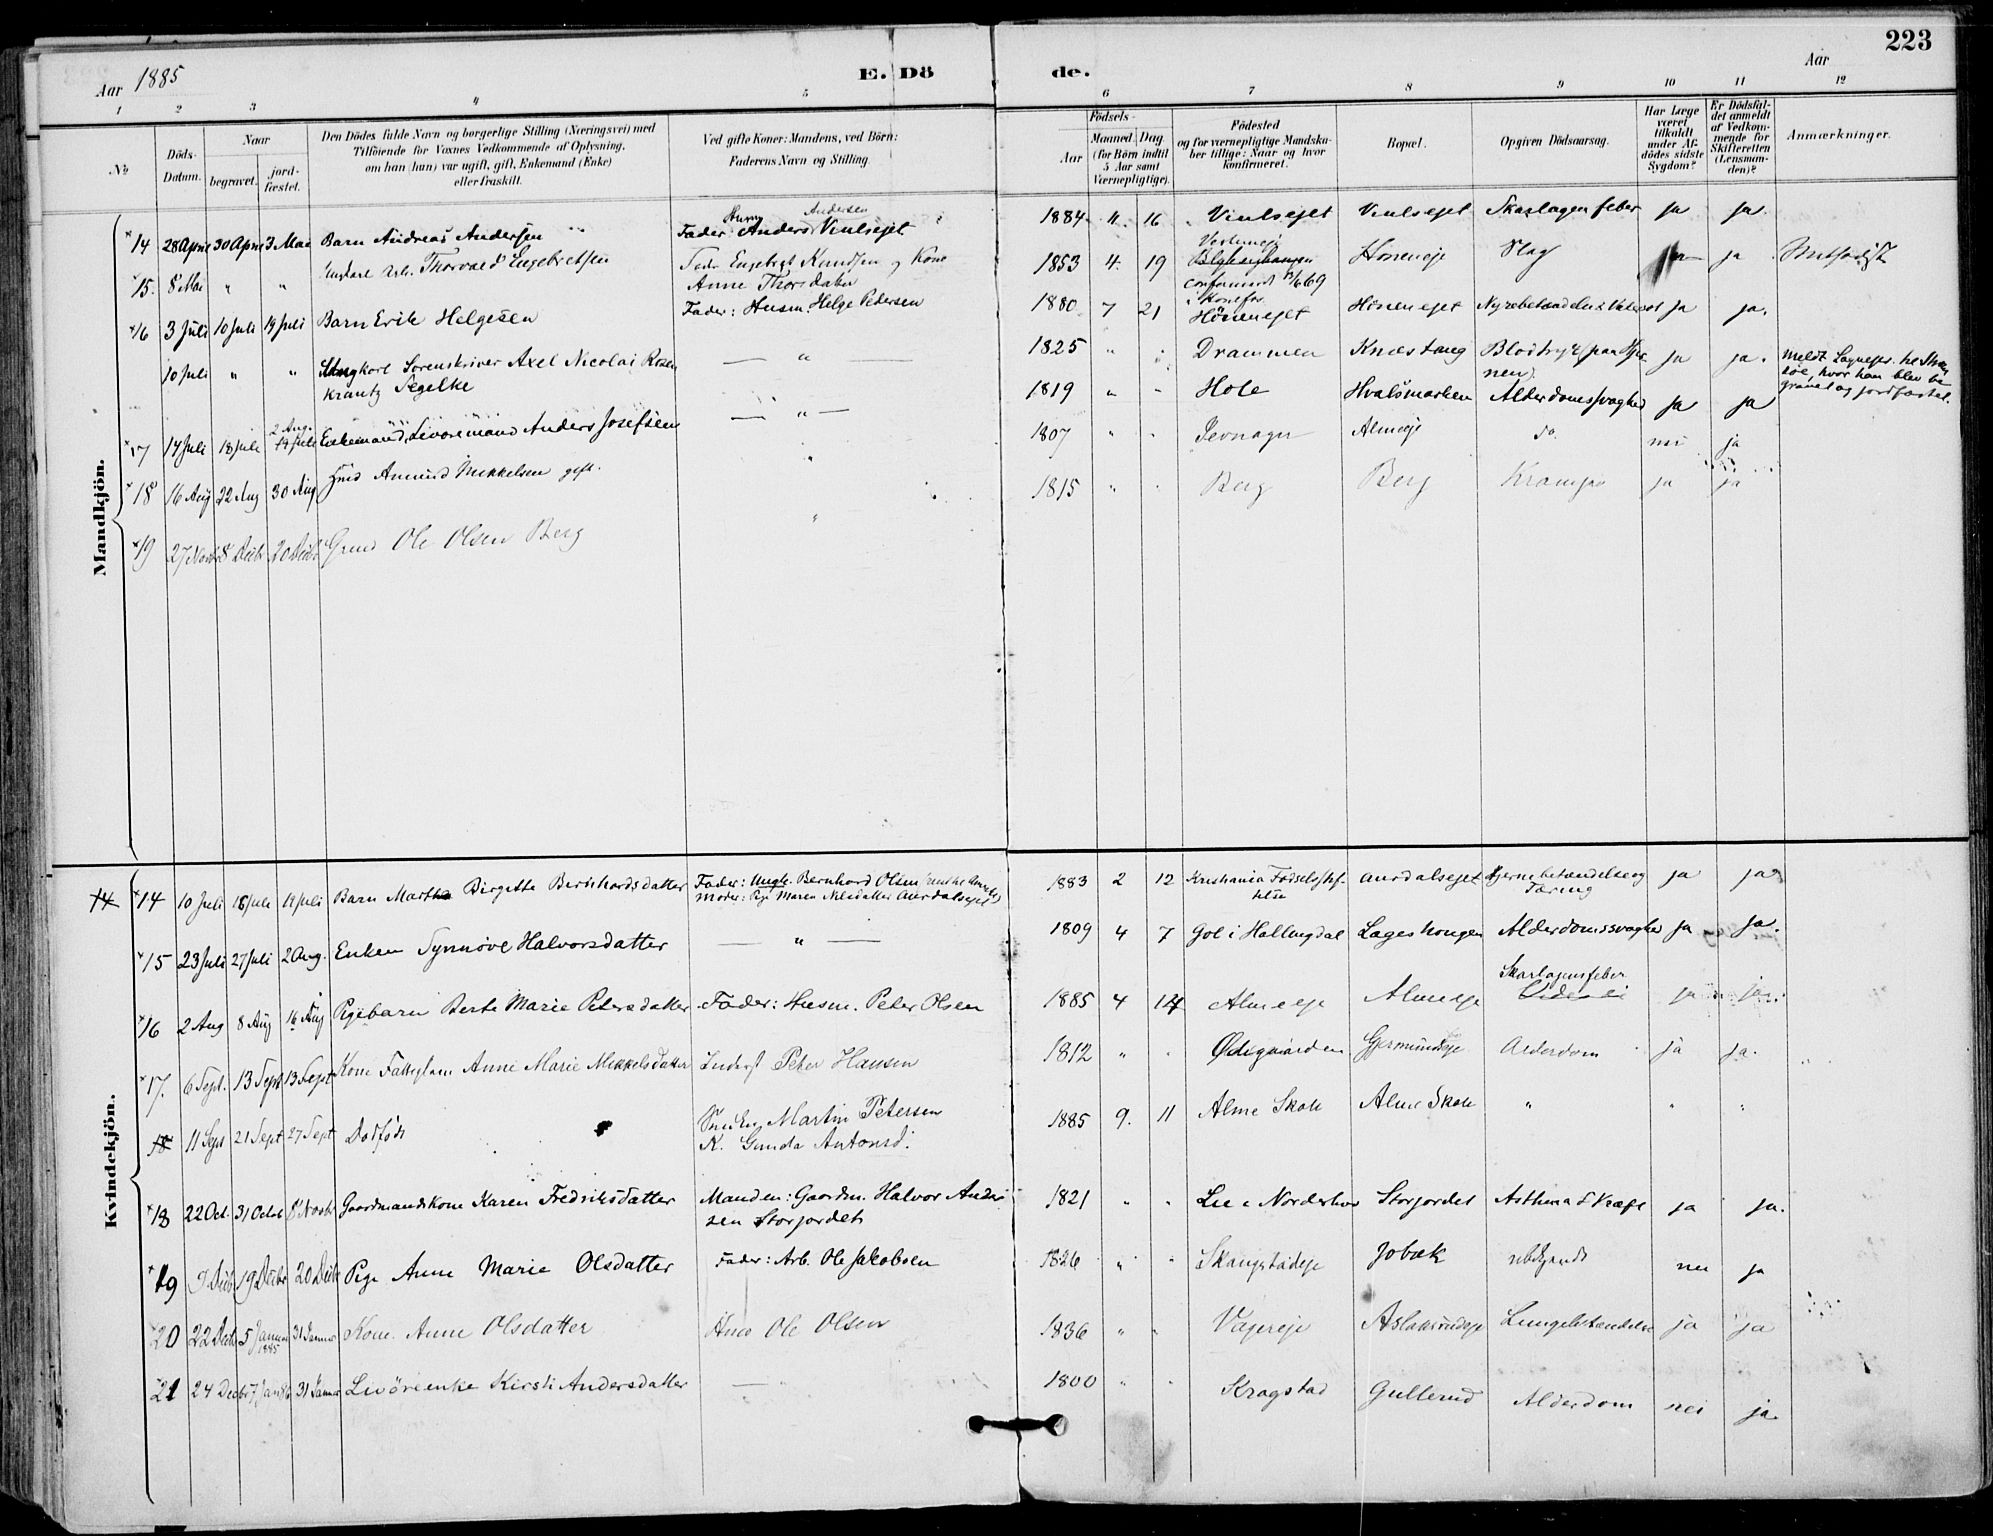 223
Aar 1885
E. Dö de.
Aar
1 2 3 4 5 6 7 8 9 10 11 12
No
Döds-Datum.
Naar
begravet.
jord-fæstet.
Den Dödes fulde Navn og borgerlige Stilling (Næringsvei) med
Tilföiende for Voxnes Vedkommende af Oplysning,
om han (hun) var ugift, gift, Enkemand (Enke)
eller fraskilt.
Ved gifte Koner: Mandens, ved Börn:
Faderens Navn og Stilling.
Födsels-
Aar
Maaned. Dag.
(for Börn indtil
5 Aar samt
Værnepligtige).
Födested
og for værnepligtige Mandska-
ber tillige: Naar og hvor
konfirmeret.
Bopæl.
Opgiven Dödsaarsag.
Har Læge
været
tilkaldt
under Af-
dödes sidste
Sygdom?
Er Dödsfal-
det anmeldt
af Vedkom-
mende for
Skifteretten
(Lensman-
den)?
Anmærkninger.
Mandkjön.
14 28 April 30 April 3 Mai Barn Andreas Andersen Fader: Anders Andersen Vinlsejet 1884 11 16 Vinlsejet Vinlsejet Skarlagenfeber ja ja.
15. 8 Mai " " Thorvald Engebretsen Fader Engebrgt Knudsen og Kone
Anne Thorsdatter 1853 4. 19 confirmeret Hønenejе Slag ja
16 3 Juli 10 Juli 19 Juli Barn Erik Helgesen Fader: Husm. Helge Pedersen 1880 7 21 Hönenejet Hönenejet ja ja.
10 Juli " " Sorenskriver Axel Nicolai Rosen
krantz Segelke — " — 1825 " Drammen Knæstang ja ja.
17 14 Juli 18 Juli 2 Aug. 19 Juli Enkemand, Livöremand Anders Josefsen — " — 1819 " " Hole Hvalsmarken Alderdomssvaghed ja ja
18 16 Aug 22 Aug 30 Aug Amund Mikkelsen gift. " 1807 " " Jevnager Almeje do. nei ja
19 8 Decbr 20 Decbr Ole Olsen Berg " 1815 " " Berg Berg ja ja
Kvindekjön.
14 14 10 Juli 18 Juli 19 Juli Barn Martha Birgitte Bernhardsdatter Fader: Ungk. Bernhard Olsen
Moder: Pige Maren Nilsdatter Aurdalsejet 1883 2 12 Kristiania Fødselsstif-
telse Aurdalsejet Hjernebetændelse og
Tæring ja ja
15 23 Juli 27 Juli 2 Aug. Enken Synnøve Halvorsdatter — " — 1809 4 7 Gol i Hallingdal Lageshougen Alderdomssvaghed ja ja.
16 2 Aug 8 Aug 16 Aug Pigebarn Berte Marie Petersdatter Fader: Husm. Peter Olsen 1885 4 14 Almeeje Almeeje Skarlagensfeber ja ja.
17. 6 Sept. 13 Sept 13 Sept Kone Fattiglem Anne Marie Mikkelsdatter Inderst Peter Hansen 1812 " " Ødegaarden Gjermundseje Alderdom ja ja.
18 11 Sept 21 Sept 27 Sept Dødfødt Martin Petersen
K. Gunda Antonsd. 1885 9. 11 Alme Skole Alme Skole " " "
18 22 Oct. 31 Octbr 8 Novbr Gaardmandskone Karen Fredriksdatter Manden: Gaardm. Halvor Ander
sen Storjordet 1821 " " Lie i Norderhov Storjordet Asthma & Kræft ja ja.
19 9 Decbr 19 Decbr 20 Decbr Pige Anne Marie Olsdatter Fader: Arb. Ole Jakobsen 1826 " " Skaugstadeje Jobæk ubekjendt nei ja
20 22 Decbr 5 Januar 1885 31 Januar Kone Anne Olsdatter Ole Olsen 1836 " " Vagereje Aslaksrudeje Lungebetændelse ja ja
21 24 Decbr 7 Jan 86 31 Januar Livöreenke Kirsti Andersdatter — " 1800 " " Kragstad Gullerud Alderdom nei ja